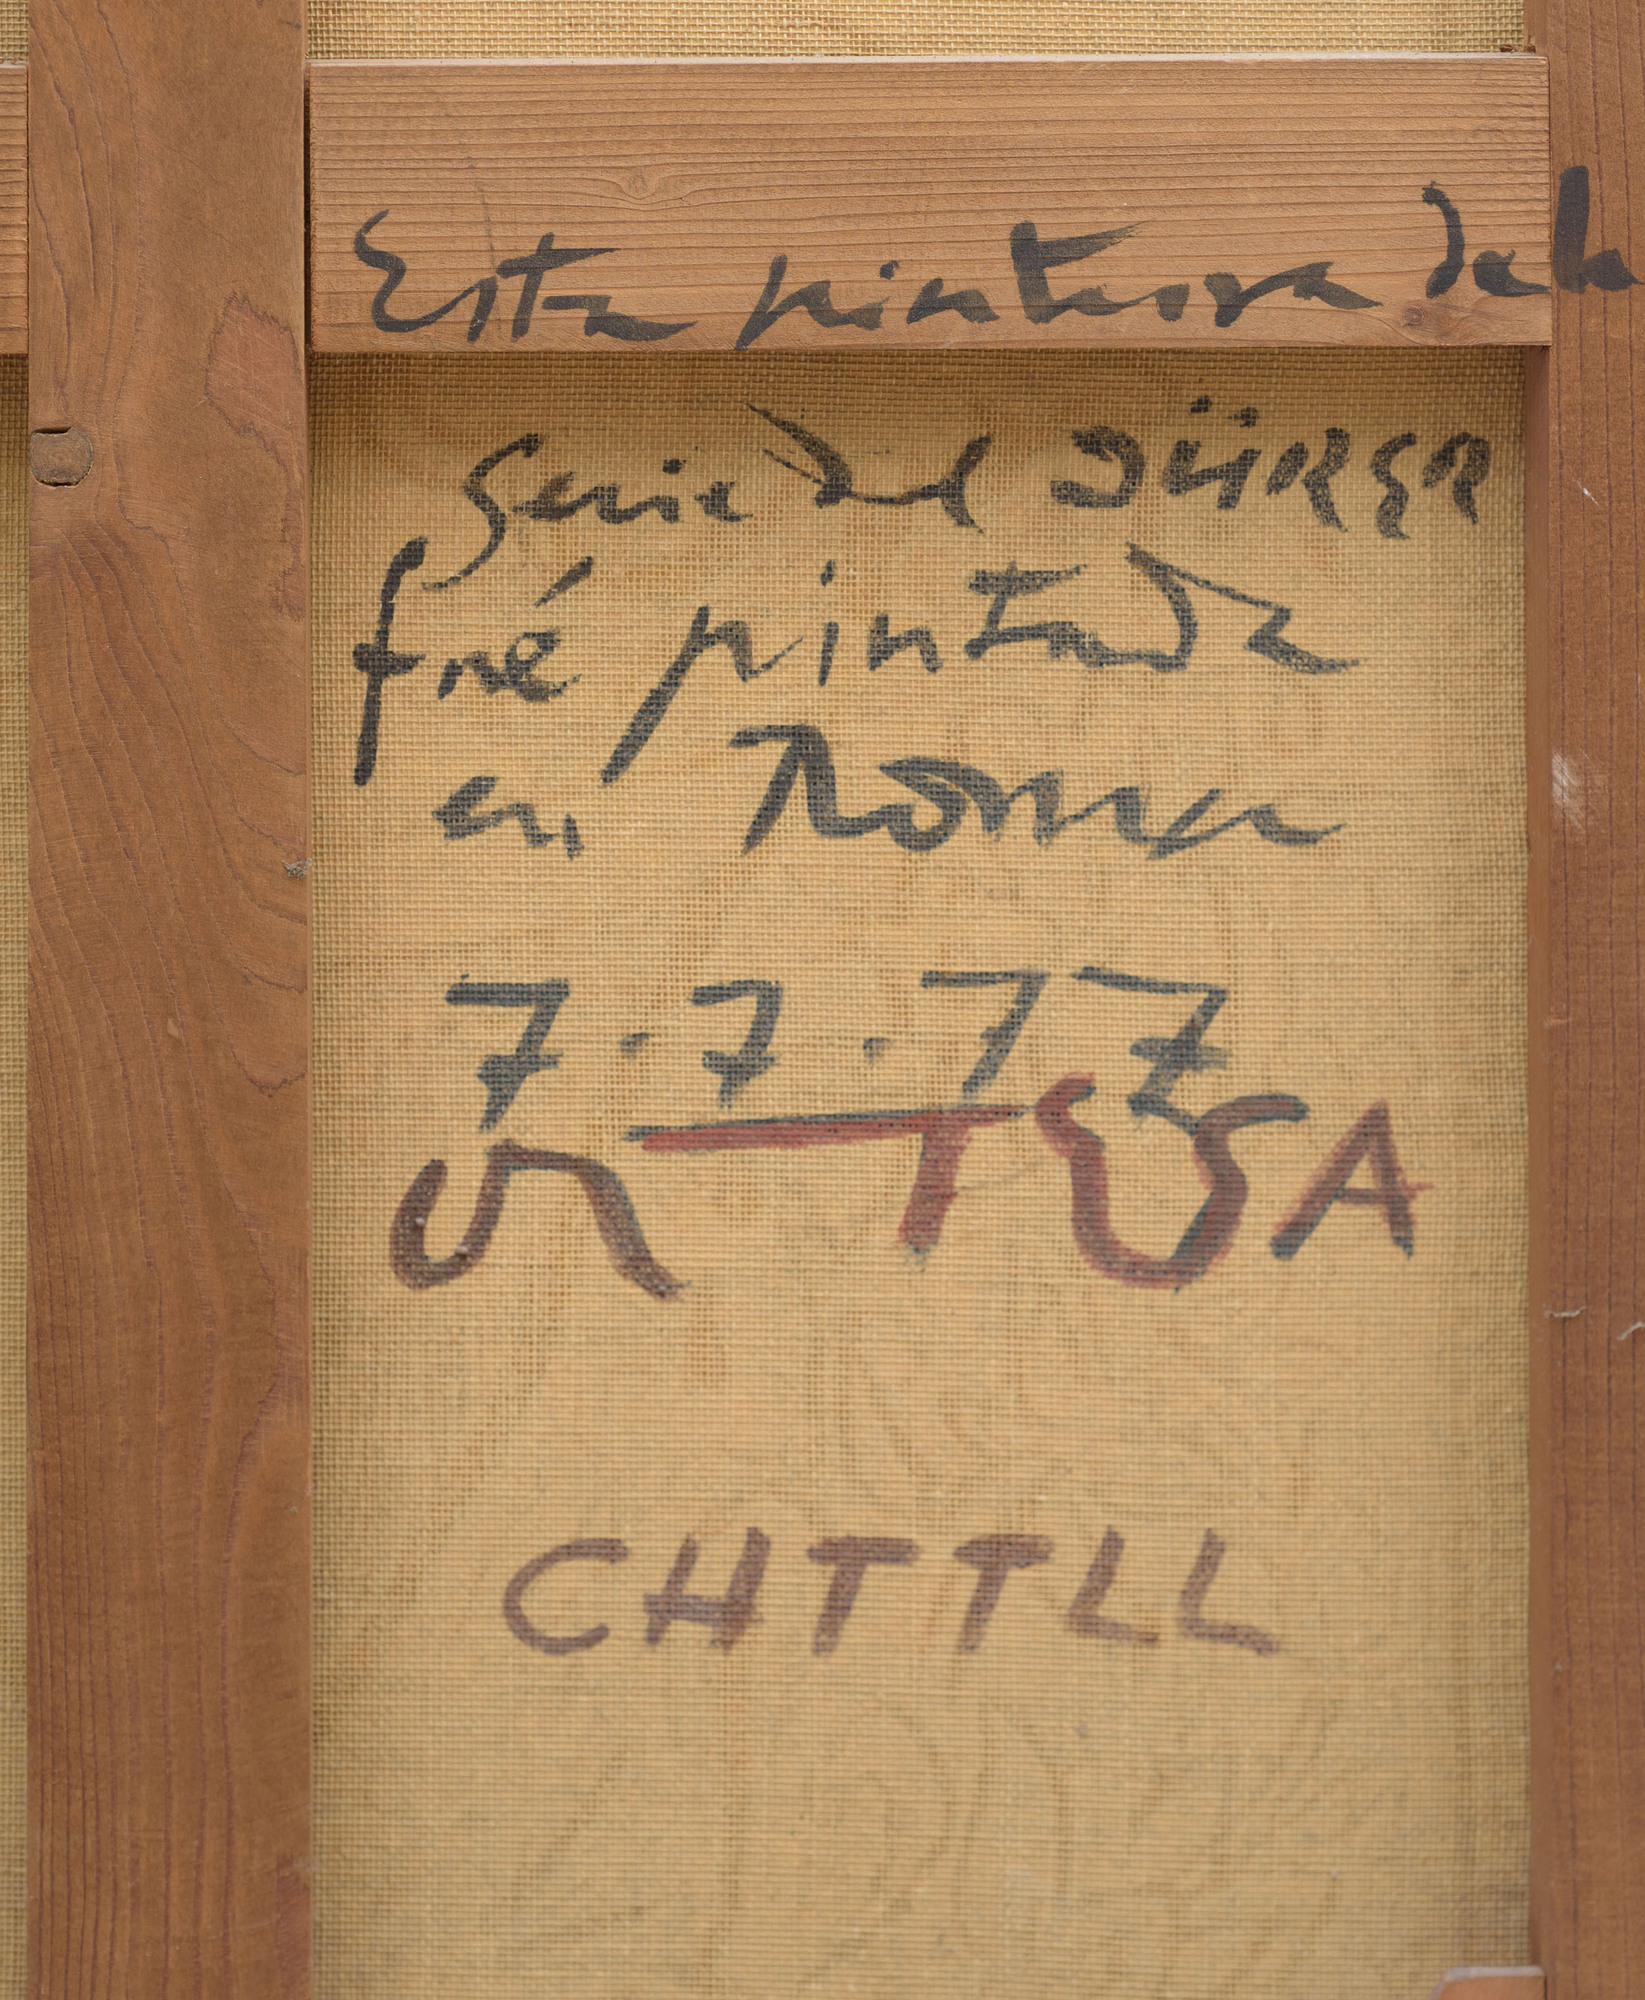 Esta pintura de la
serie del DÜRER
fué pintada
en Roma
7.7.77
CHTTLL